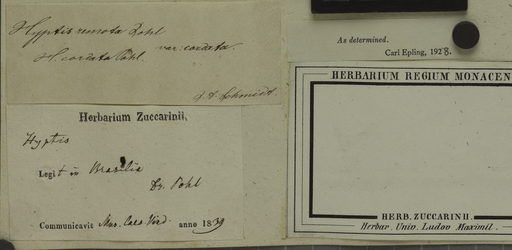 Hyptis remota Pohl
var: cordata.
H. cordata Pohl.
J. A. Schmidt
Herbarium Zuccarinii,
Hyptis
Legit in Brasilia
Dr. Pohl
Communicavit Mus. Caes. Vind. anno 1839
As determined.
Carl Epling, 1928.
HERBARIUM REGIUM MONACEN
HERB. ZUCCARINII.
Herbar. Univ. Ludov Maximil.